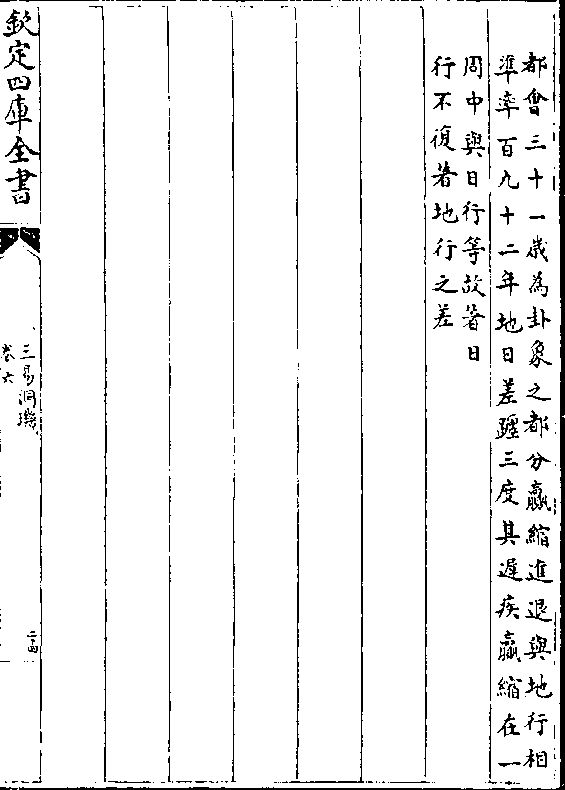 都會三十一歲為卦象之都分贏縮進退與地行相
準率百九十二年地日差躔三度其遲疾贏縮在一
周中與日行等故著日
行不復著地行之差
欽定四庫全書
三易洞璣
卷六
二十四